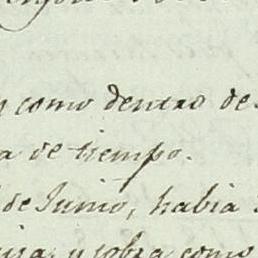 como dentro de
a de tiempo.
de Junio, habia
y sobra como